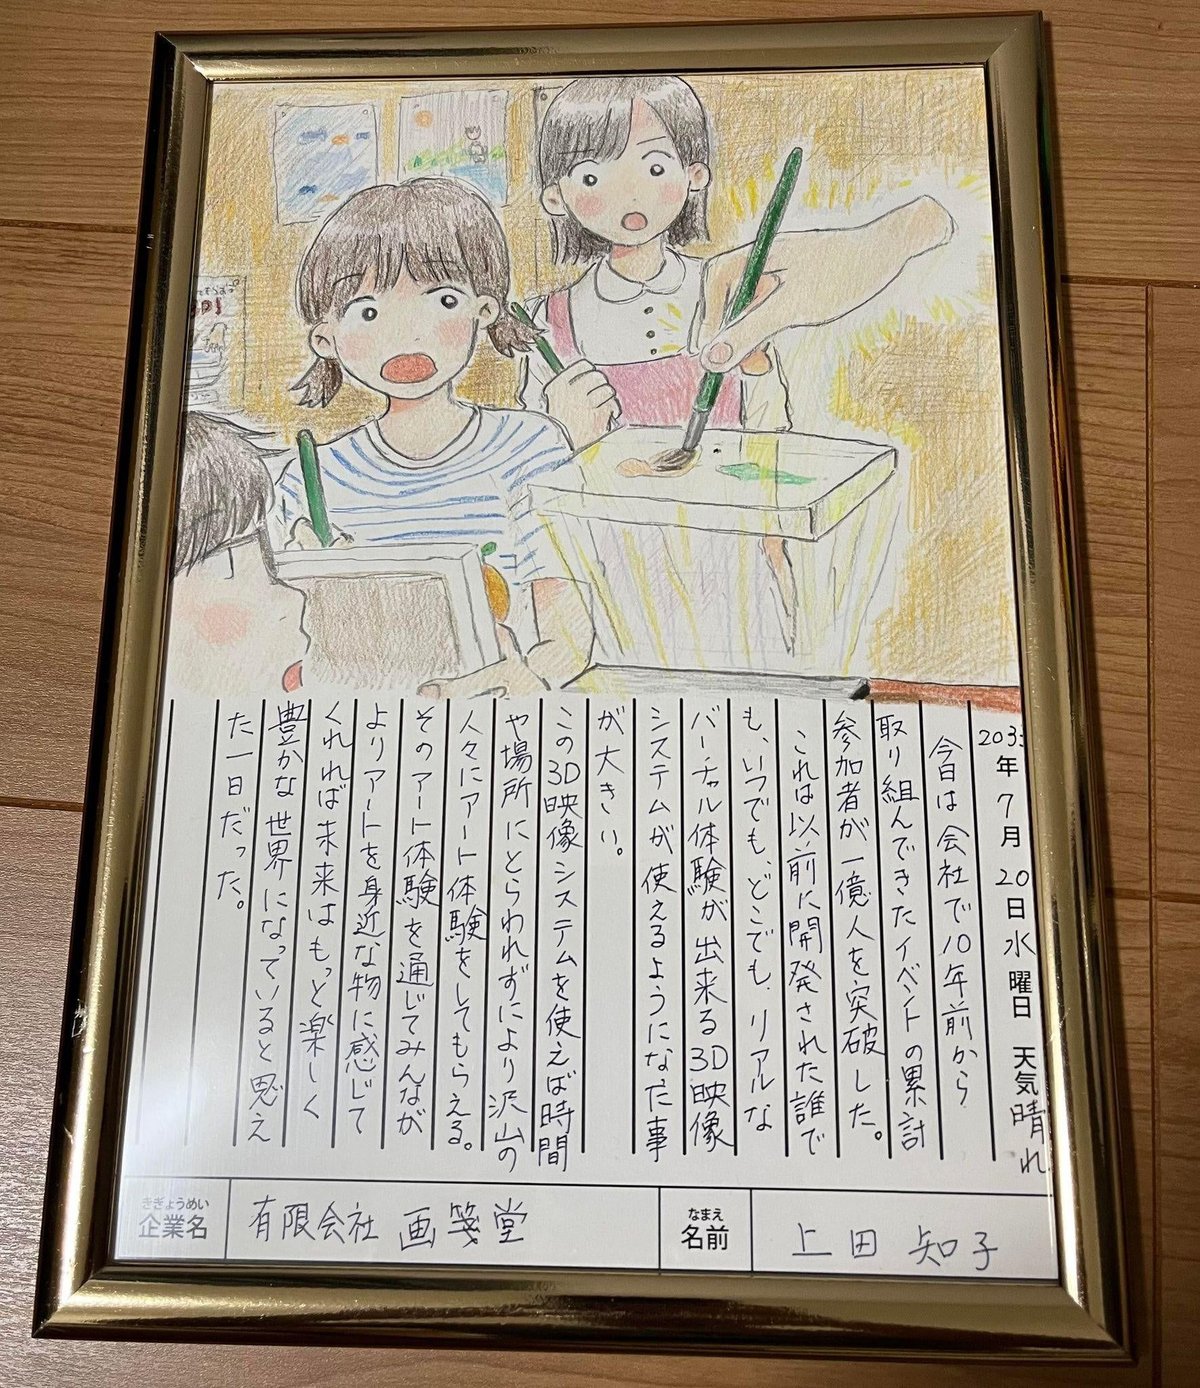 203 年 7月 20日 水曜日 天気 晴れ
今日は会社で10年前から
取り組んできたイベントの累計
参加者が一億人を突破した。
これは以前に開発された誰で
も、いつでも、どこでも、リアルな
バーチャル体験が出来る3D映像
システムが使えるようになた事
が大きい。
この3D映像システムを使えば時間
や場所にとらわれずにより沢山の
人々にアート体験をしてもらえる。
そのアート体験を通じてみんなが
よりアートを身近な物に感じて
くれれば未来はもっと楽しく
豊かな世界になっていると思え
た一日だった。
きぎょうめい
企業名
有限会社 画箋堂
なまえ
名前
上田 知子